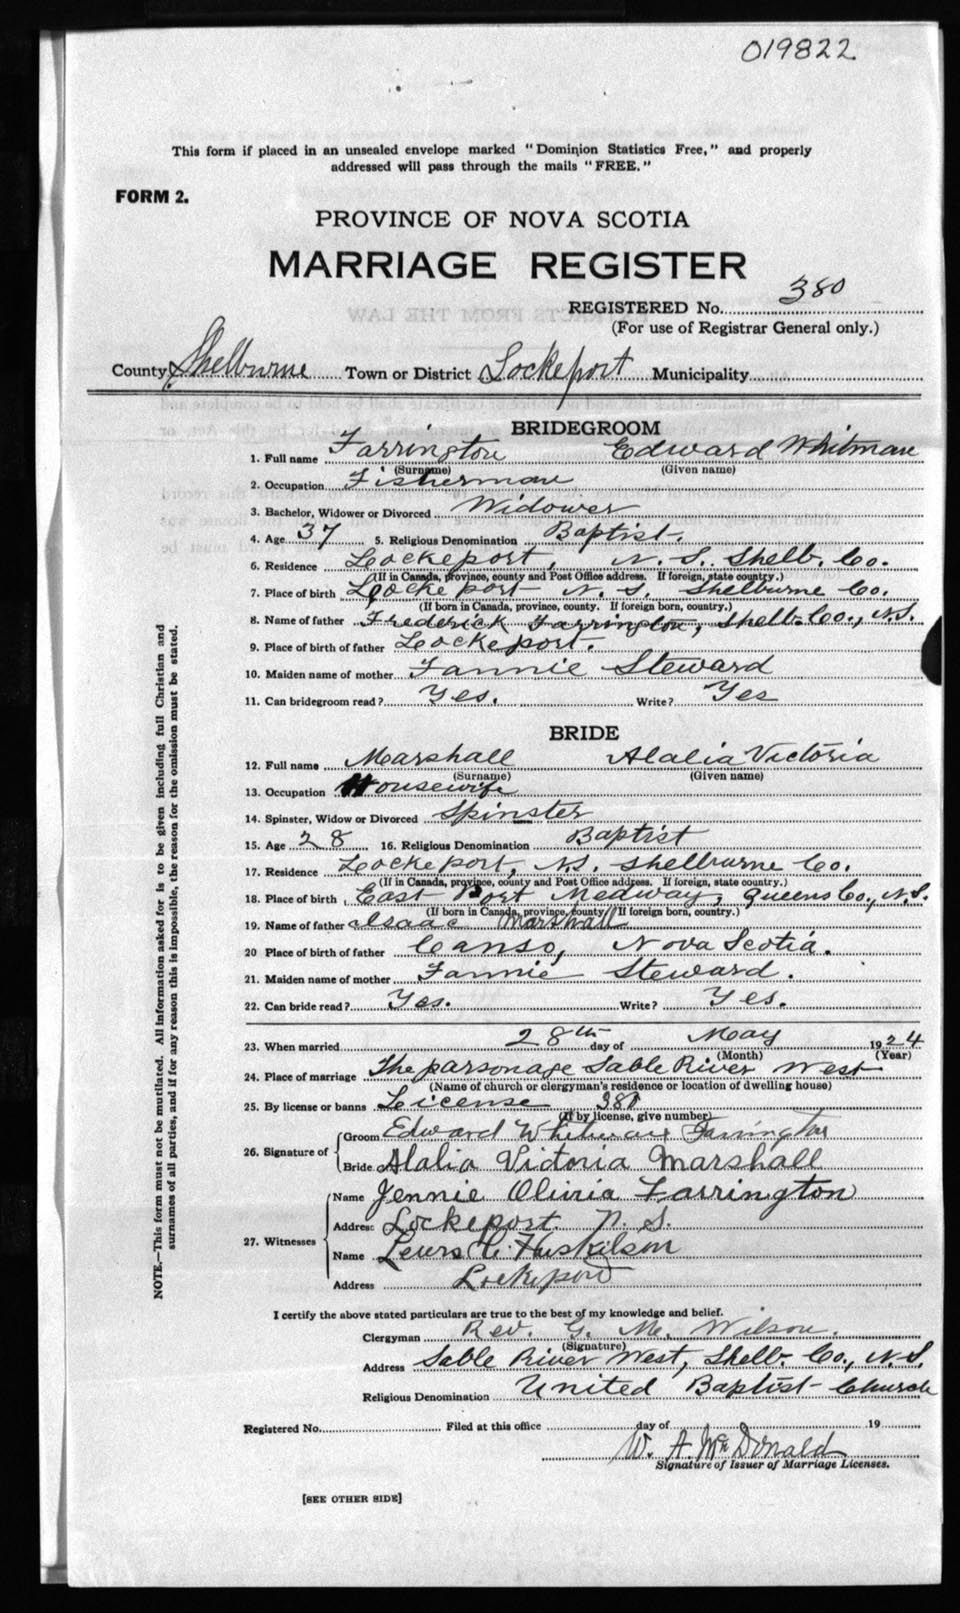 019822
This form if placed in an unsealed envelope marked "Dominion Statistics Free," and properly
addressed will pass through the mails "FREE."
FORM 2.
PROVINCE OF NOVA SCOTIA
MARRIAGE REGISTER
REGISTERED No. 380
(For use of Registrar General only.)
County Shelburne Town or District Lockeport Municipality
BRIDEGROOM
1. Full name Farrington Edward Whitman
(Surname) (Given name)
2. Occupation Fisherman
3. Bachelor, Widower or Divorced Widower
4. Age 37 5. Religious Denomination Baptist.
6. Residence Lockeport, N. S. Shelb. Co.
(If in Canada, province, county and Post Office address. If foreign, state country.)
7. Place of birth Lockeport N. S. Shelburne Co.
(If born in Canada, province, county. If foreign born, country.)
8. Name of father Frederick Farrington, Shelb. Co., N.S.
9. Place of birth of father Lockeport.
10. Maiden name of mother Fannie Steward
11. Can bridegroom read? Yes. Write? Yes
BRIDE
12. Full name Marshall Alalia Victoria
(Surname) (Given name)
13. Occupation Housewife
14. Spinster, Widow or Divorced Spinster
15. Age 28 16. Religious Denomination Baptist
17. Residence Lockeport, N.S. Shelburne Co.
(If in Canada, province, county and Post Office address. If foreign, state country.)
18. Place of birth East Port Medway, Queens Co., N.S.
(If born in Canada, province, county. If foreign born, country.)
19. Name of father Isaac Marshall
20 Place of birth of father Canso, Nova Scotia.
21. Maiden name of mother Fannie Steward.
22. Can bride read? Yes. Write? Yes.
23. When married 28th day of May 1924
(Month) (Year)
24. Place of marriage The parsonage Sable River West
(Name of church or clergyman's residence or location of dwelling house)
25. By license or banns License 380
(If by license, give number)
26. Signature of Groom Edward Whitman Farrington
Bride Alalia Victoria Marshall
27. Witnesses Name Jennie Olivia Farrington
Address Lockeport. N. S.
Name Lewis C. Huskilson
Address Lockeport
I certify the above stated particulars are true to the best of my knowledge and belief.
Clergyman Rev. G. M. Wilson.
(Signature)
Address Sable River West, Shelb. Co., N.S.
Religious Denomination United Baptist Church
Registered No. Filed at this office day of 19
W. A. McDonald
Signature of Issuer of Marriage Licenses.
[SEE OTHER SIDE]
NOTE.—This form must not be mutilated. All information asked for is to be given including full Christian and
surnames of all parties, and if for any reason this is impossible, the reason for the omission must be stated.